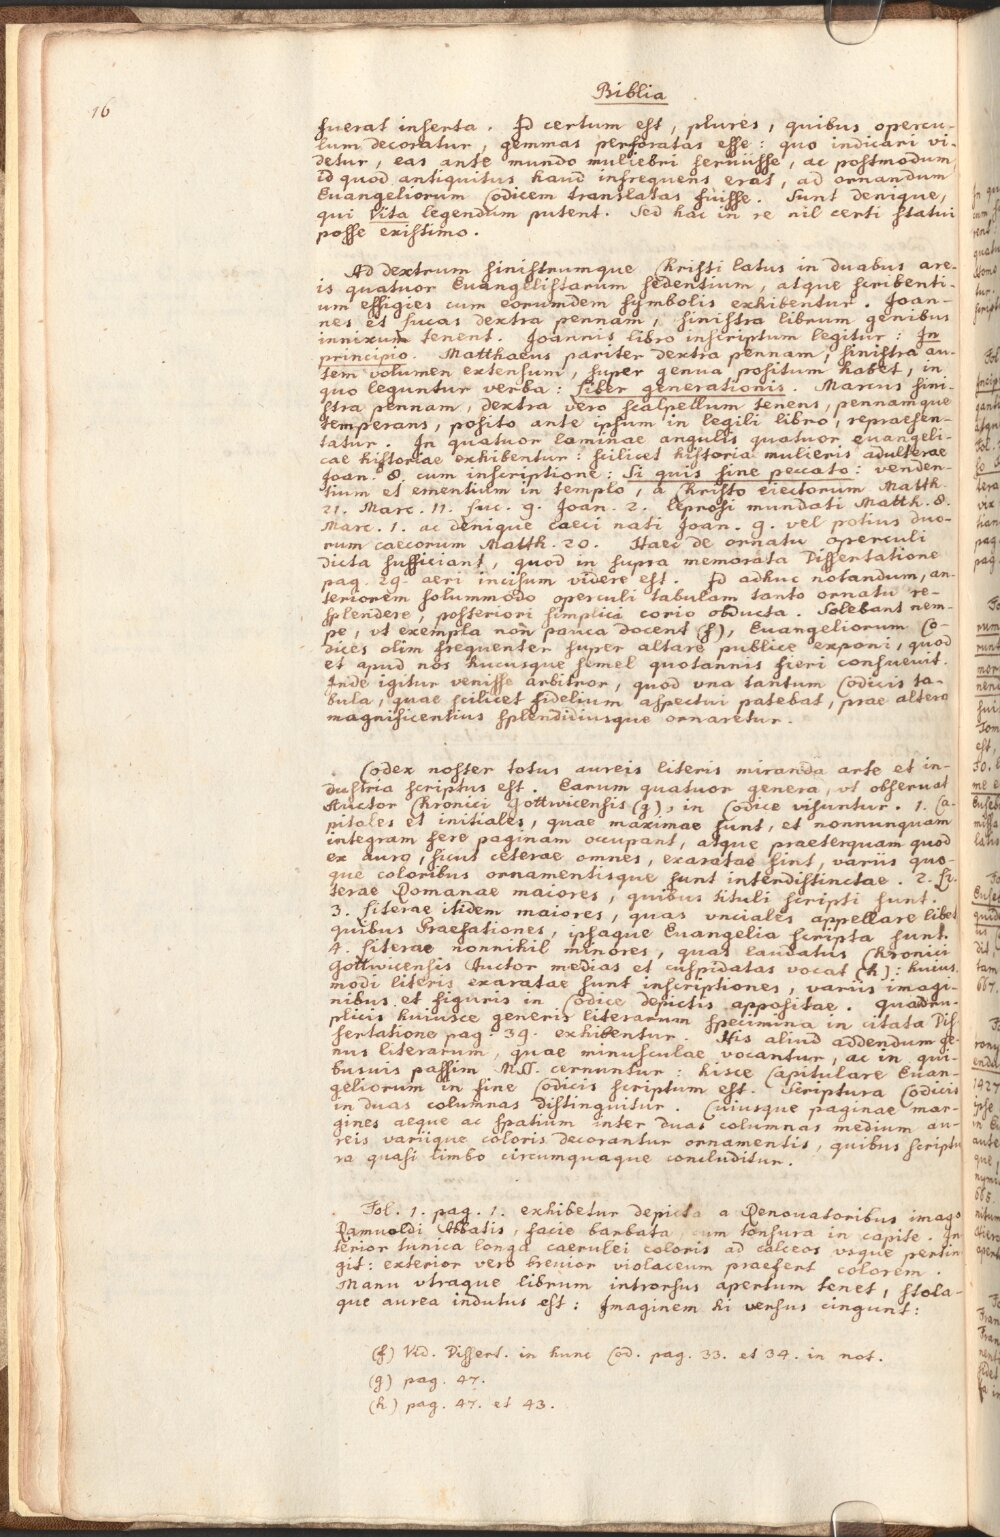 16
Biblia
fuerat inserta. Id certum est, plures, quibus opercu-
lum decoratur, gemmas perforatas esse: quo indicari vi-
detur, eas ante mundo muliebri seruisse, ac postmodum,
id quod antiquitus haud infrequens erat, ad ornandum
Euangeliorum Codicem translatas fuisse. Sunt denique,
qui Vita legendum putent. Sed hac in re nil certi statui
posse existimo.
Ad dextrum sinistrumque Christi latus in duabus are-
is quatuor Euangelistarum sedentium, atque scribenti-
um effigies cum eorumdem symbolis exhibentur. Joan-
nes et Lucas dextra pennam, sinistra librum genibus
innixum tenent. Joannis libro inscriptum legitur: In
principio. Matthaeus pariter dextra pennam, sinistra au-
tem volumen extensum, super genua positum habet, in
quo leguntur verba: Liber generationis. Marcus sini-
stra pennam, dextra vero scalpellum tenens, pennamque
temperans, posito ante ipsum in legili libro, repraesen-
tatur. In quatuor laminae angulis quatuor euangeli-
cae historiae exhibentur: scilicet historia mulieris adulterae
Joan. 8. cum inscriptione: Si quis sine peccato: venden-
tium et ementium in templo, a Christo eiectorum Matth.
21. Marc. 11. Luc. 9. Joan. 2. leprosi mundati Matth. 8.
Marc. 1. ac denique caeci nati Joan. 9. vel potius duo-
rum caecorum Matth. 20. Haec de ornatu operculi
dicta sufficiant, quod in supra memorata Dissertatione
pag. 29. aeri incisum videre est. Id adhuc notandum, an-
teriorem solummodo operculi tabulam tanto ornatu re-
splendere, posteriori simplici corio obducta. Solebant nem-
pe, vt exempla non pauca docent (f), Euangeliorum Co-
dices olim frequenter super altare publice exponi, quod
et apud nos hucusque semel quotannis fieri consueuit.
Inde igitur venisse arbitror, quod vna tantum Codicis ta-
bula, quae scilicet fidelium aspectui patebat, prae altera
magnificentius splendidiusque ornaretur.
Codex noster totus aureis literis miranda arte et in-
dustria scriptus est. Earum quatuor genera, vt obseruat
Auctor Chronici Gottwicensis (g), in Codice visuntur. 1. Ca-
pitales et initiales, quae maximae sunt, et nonnunquam
integram fere paginam occupant, atque praeterquam quod
ex auro, sicut ceterae omnes, exaratae sint, variis quo-
que coloribus ornamentisque sunt interdistinctae. 2. Li-
terae Romanae maiores, quibus tituli scripti sunt.
3. Literae itidem maiores, quas vnciales appellare libet
quibus Praefationes, ipsaque Euangelia scripta sunt.
4. Literae nonnihil minores, quas laudatus Chronici
Gottwicensis Auctor medias et cuspidatas vocat (h): huius
modi literis exaratae sunt inscriptiones, variis imagi-
nibus et figuris in Codice depictis appositae. Quadru-
plicis huiusce generis literarum specimina in citata Dis
sertatione pag. 39. exhibentur. His aliud addendum ge-
nus literarum, quae minusculae vocantur, ac in qui-
busuis passim MSS. cernuntur: hisce Capitulare Euan-
geliorum in fine Codicis scriptum est. Scriptura Codicis
in duas columnas distinguitur. Cuiusque paginae mar-
gines aeque ac spatium inter duas columnas medium au-
reis variique coloris decorantur ornamentis, quibus scriptu
ra quasi limbo circumquaque concluditur.
Fol. 1. pag. 1. exhibetur depicta a Renouatoribus imago
Ramuoldi Abbatis, facie barbata, cum tonsura in capite. In
terior tunica longa caerulei coloris ad calceos vsque pertin
git: exterior vero breuior violaceum praefert colorem.
Manu vtraque librum introrsus apertum tenet, stola-
que aurea indutus est: Imaginem hi versus cingunt:
(f) Vid. Dissert. in hunc Cod. pag. 33. et 34. in not.
(g) pag. 47.
(h) pag. 47. et 43.